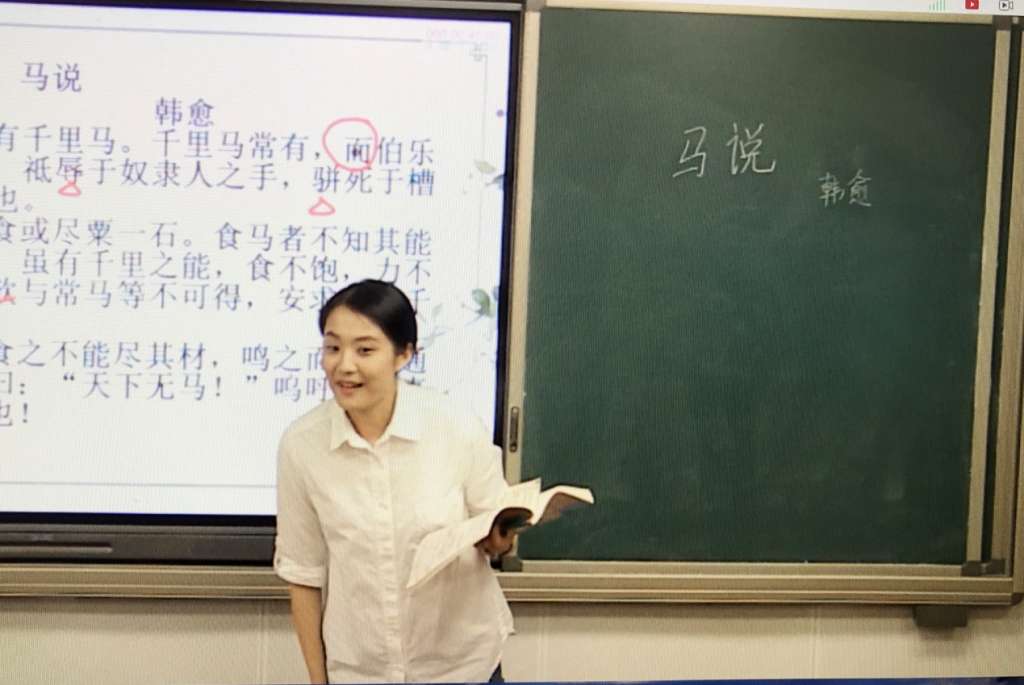 马说
韩愈
有千里马。千里马常有，而伯乐
祗辱于奴隶人之手，骈死于槽
也。
食或尽粟一石。食马者不知其能
虽有千里之能，食不饱，力不
欲与常马等不可得，安求
食之不能尽其材，鸣之而 通
曰：“天下无马！”呜呼
也！
马说
韩愈